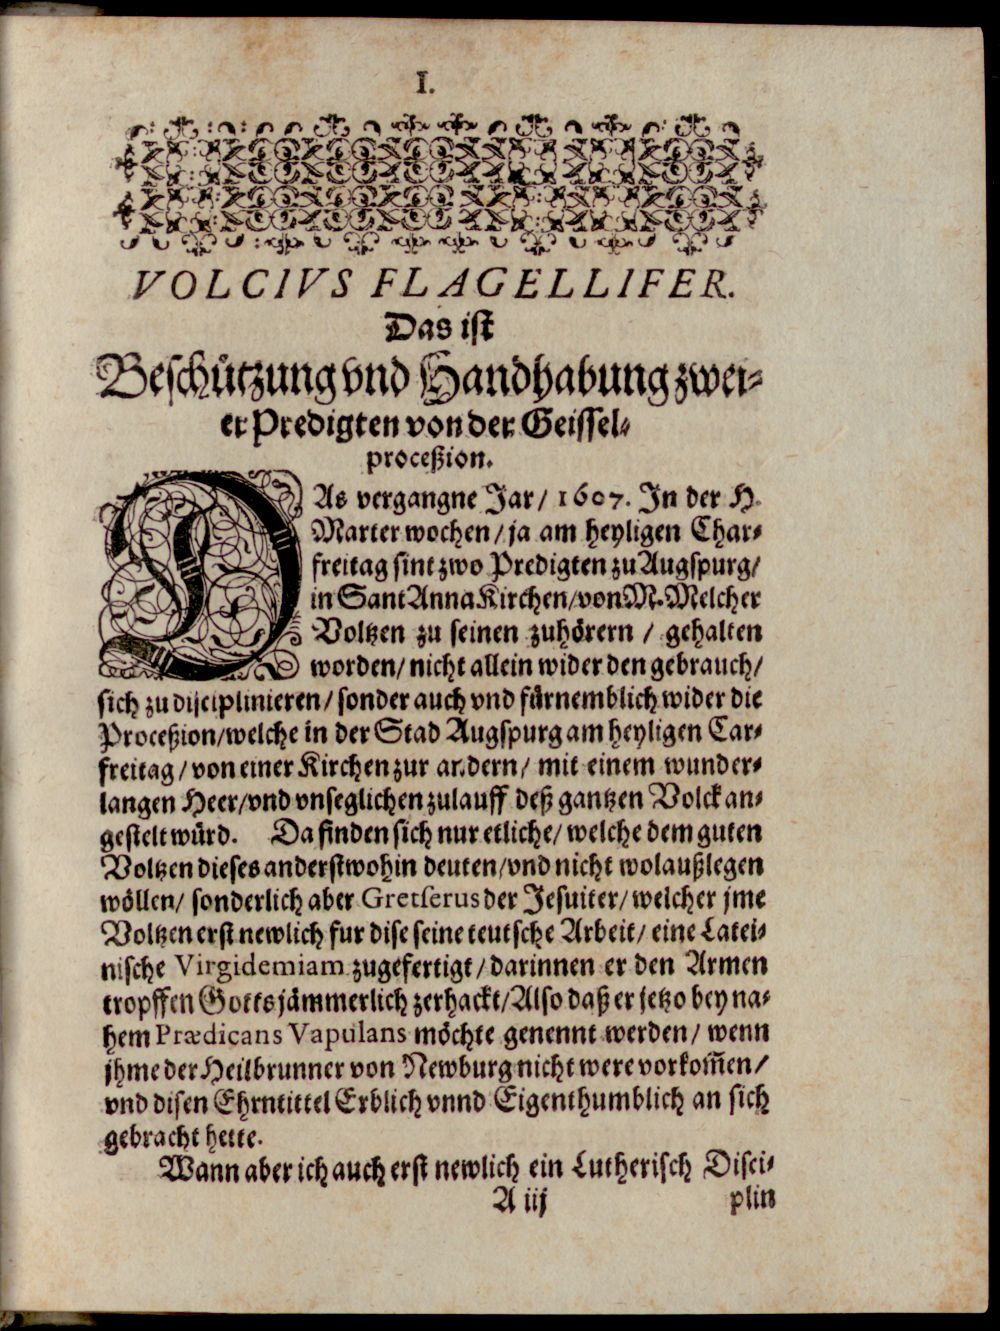 I.
VOLCIVS FLAGELLIFER.
Das ist
Beschützung vnd Handhabung zwei-
er Predigten von der Geissel-
proceßion.
DAs vergangne Jar/ 1607. In der H.
Marter wochen/ ja am heyligen Char-
freitag sint zwo Predigten zu Augspurg/
in Sant Anna Kirchen/ von M. Melcher
Voltzen zu seinen zuhörern / gehalten
worden/ nicht allein wider den gebrauch/
sich zu disciplinieren/ sonder auch vnd fürnemblich wider die
Proceßion/ welche in der Stad Augspurg am heyligen Car-
freitag/ von einer Kirchen zur andern/ mit einem wunder-
langen Heer/ vnd vnseglichen zulauff deß gantzen Volck an-
gestelt würd. Da finden sich nur etliche/ welche dem guten
Voltzen dieses anderstwohin deuten/ vnd nicht wol außlegen
wöllen/ sonderlich aber Gretserus der Jesuiter/ welcher jme
Voltzen erst newlich fur dise seine teutsche Arbeit/ eine Latei-
nische Virgidemiam zugefertigt/ darinnen er den Armen
tropffen Gotts jämmerlich zerhackt/ Also daß er jetzo bey na-
hem Prædicans Vapulans möchte genennt werden/ wenn
jhme der Heilbrunner von Newburg nicht were vorkom̃en/
vnd disen Ehrntittel Erblich vnnd Eigenthumblich an sich
gebracht hette.
Wann aber ich auch erst newlich ein Lutherisch Disci-
A iij plin